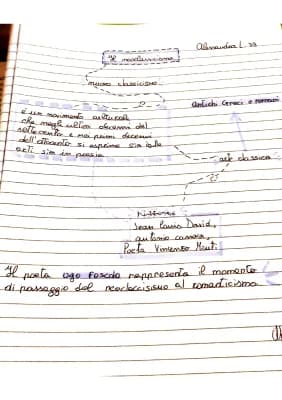 Alessandra L. 3B
Il neoclassicismo
nuovo classicismo
Antichi Greci e romani
è un movimento culturale
che negli ultimi decenni del
settecento e nei primi decenni
dell'ottocento si esprime sia nelle
arti sia in poesia
arte classica
Jean Louis David,
antonio canova,
Poeta Vincenzo Monti
Il poeta ugo Foscolo rappresenta il momento
di passaggio dal neoclassicismo al romanticismo